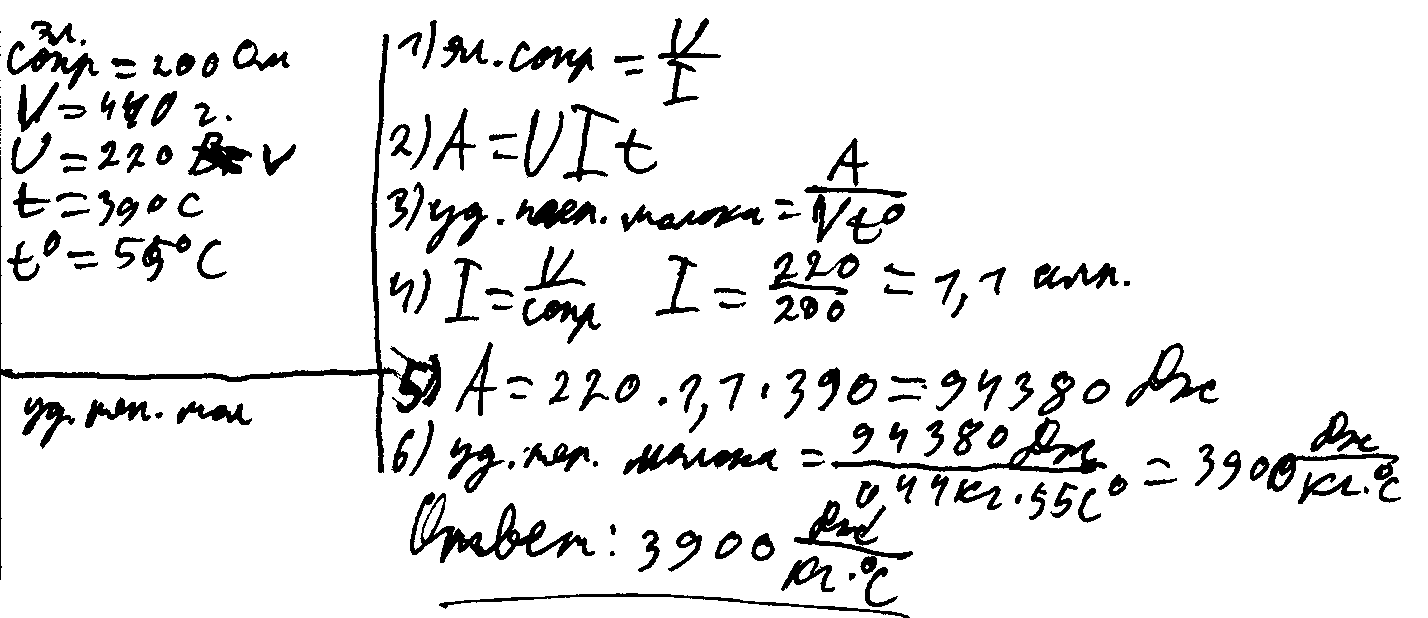 эл.
сопр = 200 Ом
V = 440 г.
U = 220 V
t = 390 с
t⁰ = 55°C
уд. теп. мол
1) эл. сопр = U/I
2) A = UIt
3) уд. теп. молока = A/Vt⁰
4) I = U/сопр I = 220/200 = 1,1 амп.
5) A = 220 · 1,1 · 390 = 94380 Дж
6) уд. теп. молока = 94380 Дж/0,44 кг · 55C° = 3900 Дж/кг · °C
Ответ: 3900 Дж/кг · °C